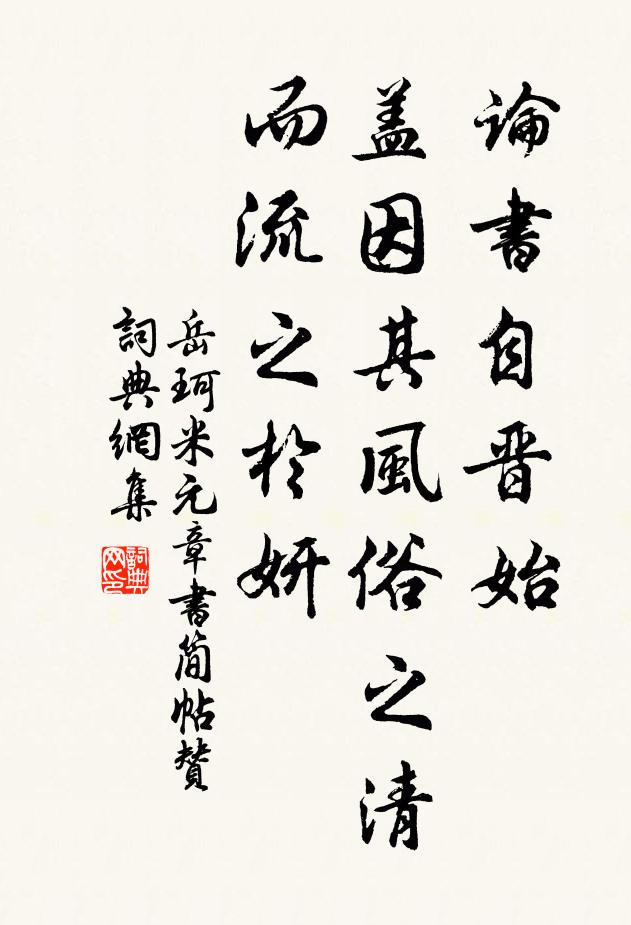 論書自晋始
盖因其風俗之清
而流之於妍
岳珂米元章書简帖賛
詞典網集
詞典网印